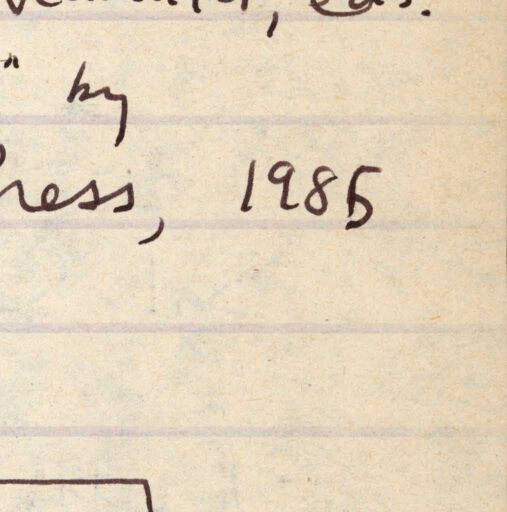 eds.
" by
ress, 1985